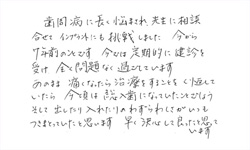 歯周病に長く悩まされ 先生に相談
させて インプラントにも挑戦しました 今から
7年前のことです 今では定期的に健診を
受け 全く問題なく過ごしています
あのまま 痛くなったら治療をすることを くり返して
いたら 今頃は 総入歯になっていたことでしょう
そして 出したり入れたりのわずらわしさが いつも
つきまとっていたと思います 早く決心して良かったと思って
います